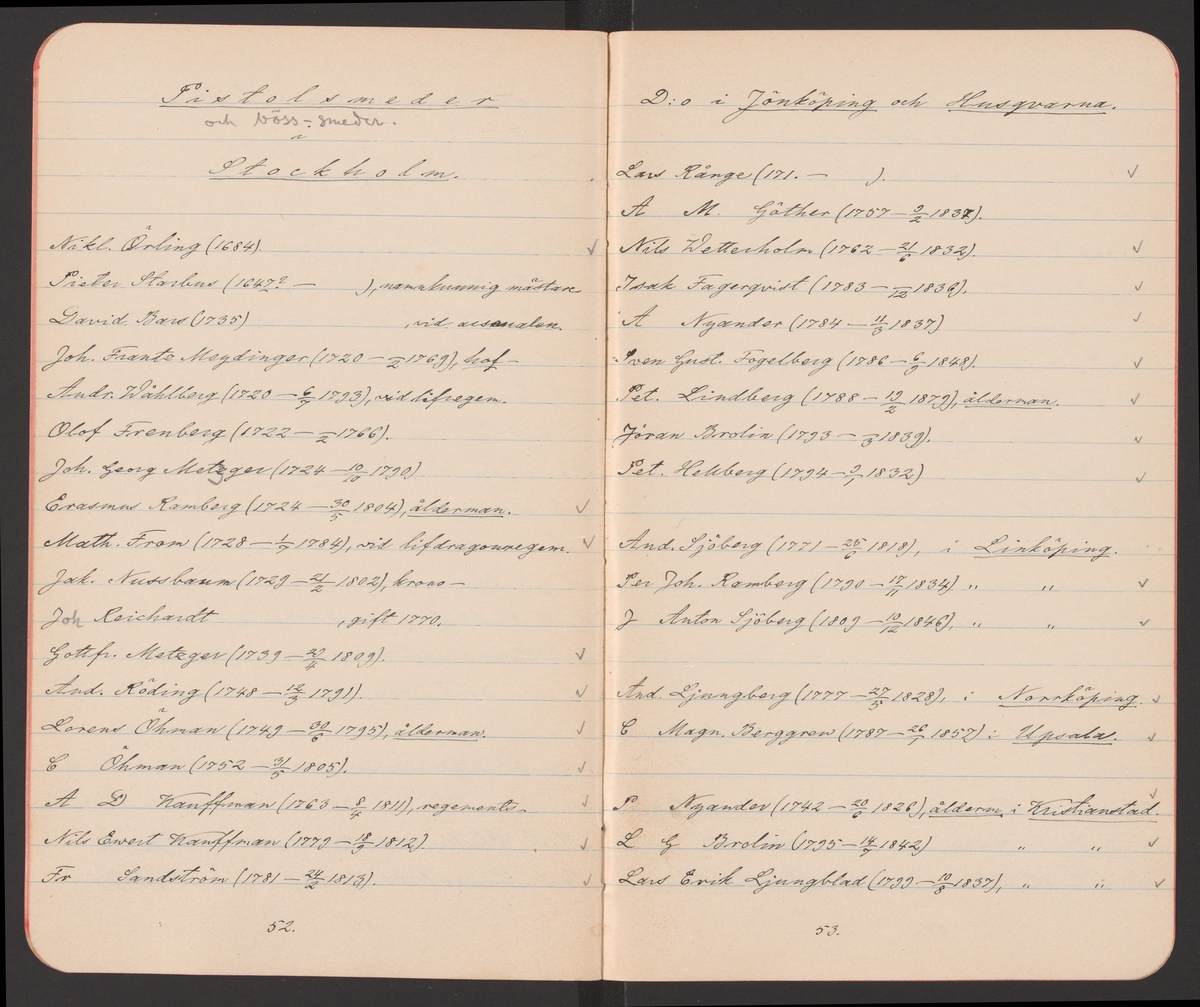 Pistolsmeder
och böss-smeder.
i
Stockholm.
Nikl. Örling (1684).
Pieter Starbus (1647? — ), namnkunnig mästare
David Bars (1735) , vid arsenalen.
Joh. Frantz Meydinger (1720 — —/2 1769), hof-
Andr. Wåhlberg (1720 — 6/7 1793), vid lifregem.
Olof Frenberg (1722 — —/2 1766).
Joh. Georg Metzger (1724 — 10/10 1790)
Erasmus Ramberg (1724 — 30/5 1804), ålderman. ✓
Math. From (1728 — 1/7 1784), vid lifdragonregem. ✓
Jak. Nussbaum (1729 — 21/2 1802), krono-
Joh Reichardt , gift 1770.
Gottfr. Metzger (1739 — 29/4 1809). ✓
And. Röding (1748 — 12/3 1791). ✓
Lorens Öhman (1749 — 30/6 1795), ålderman. ✓
C Öhman (1752 — 31/5 1805). ✓
A D Kauffman (1763 — 8/4 1811), regements- ✓
Nils Ewert Kauffman (1779 — 18/9 1812). ✓
Fr Sandström (1781 — 24/2 1813). ✓
52.
D:o i Jönköping och Husqvarna.
Lars Rånge (171. — ). ✓
A M. Göther (1757 — 9/2 1837).
Nils Wetterholm (1762 — 21/6 1832). ✓
Isak Fagerqvist (1783 — —/12 1836). ✓
A Nyander (1784 — 11/3 1837) ✓
Sven Gust. Fogelberg (1786 — 6/9 1848). ✓
Pet. Lindberg (1788 — 19/2 1879), ålderman. ✓
Jöran Brolin (1793 — —/3 1839). ✓
Pet. Hellberg (1794 — 9/1 1832) ✓
And. Sjöberg (1771 — 25/6 1818), i Linköping.
Per Joh. Ramberg (1790 — 17/11 1834) " " ✓
J Anton Sjöberg (1809 — 10/12 1846), " " ✓
And. Ljungberg (1777 — 27/5 1828), i Norrköping. ✓
C Magn. Berggren (1787 — 26/1 1857) i Upsala. ✓
P Nyander (1742 — 20/6 1826), ålderm. i Kristianstad. ✓
L G Brolin (1795 — 14/7 1842) " " ✓
Lars Erik Ljungblad (1799 — 10/8 1837), " " ✓
53.